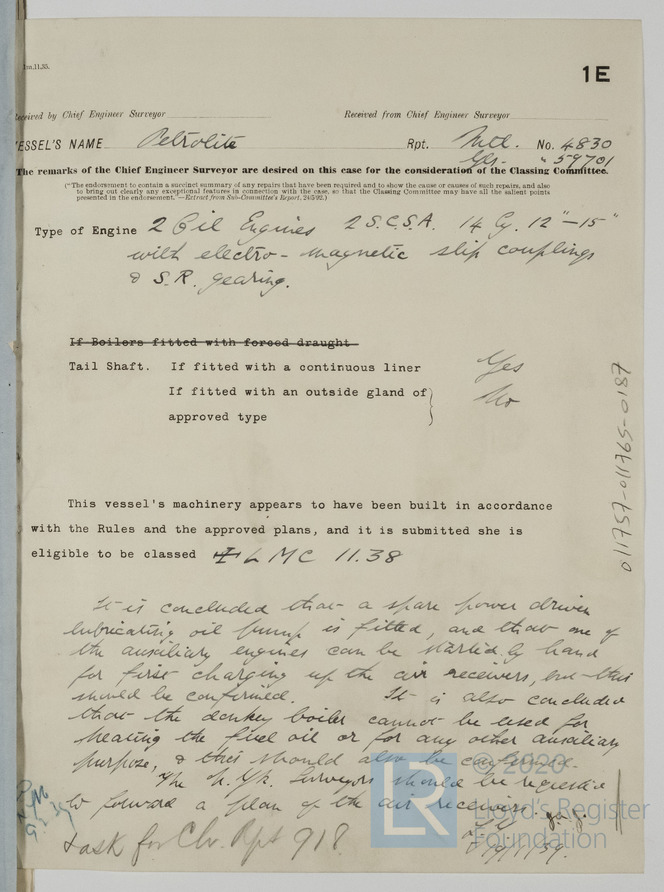 1m.11.35.
1E
Received by Chief Engineer Surveyor
Received from Chief Engineer Surveyor
VESSEL'S NAME Petrolite Rpt. Mtl. No. 4830
Gls. " 59701
The remarks of the Chief Engineer Surveyor are desired on this case for the consideration of the Classing Committee.
("The endorsement to contain a succinct summary of any repairs that have been required and to show the cause or causes of such repairs, and also
to bring out clearly any exceptional features in connection with the case, so that the Classing Committee may have all the salient points
presented in the endorsement."—Extract from Sub-Committee's Report, 24/5/92.)
Type of Engine 2 Oil Engines 2 S.C.S.A. 14 Cy. 12"–15"
with electro-magnetic slip couplings
& S.R. gearing.
If Boilers fitted with forced draught
Tail Shaft. If fitted with a continuous liner Yes
If fitted with an outside gland of} No
approved type
This vessel's machinery appears to have been built in accordance
with the Rules and the approved plans, and it is submitted she is
eligible to be classed ✠ LMC 11.38
It is concluded that a spare power driven
lubricating oil pump is fitted, and that one of
the auxiliary engines can be started by hand
for first charging up the air receivers, but this
should be confirmed. It is also concluded
that the donkey boiler cannot be used for
heating the fuel oil or for any other auxiliary
purpose, & this should also be confirmed.
The Surveyors should be requested
to forward a plan of the air receivers
& ask for Chr. Rpt 918
19/1/39.
011757-011765-0187
© 2020
LR
Lloyd's Register
Foundation